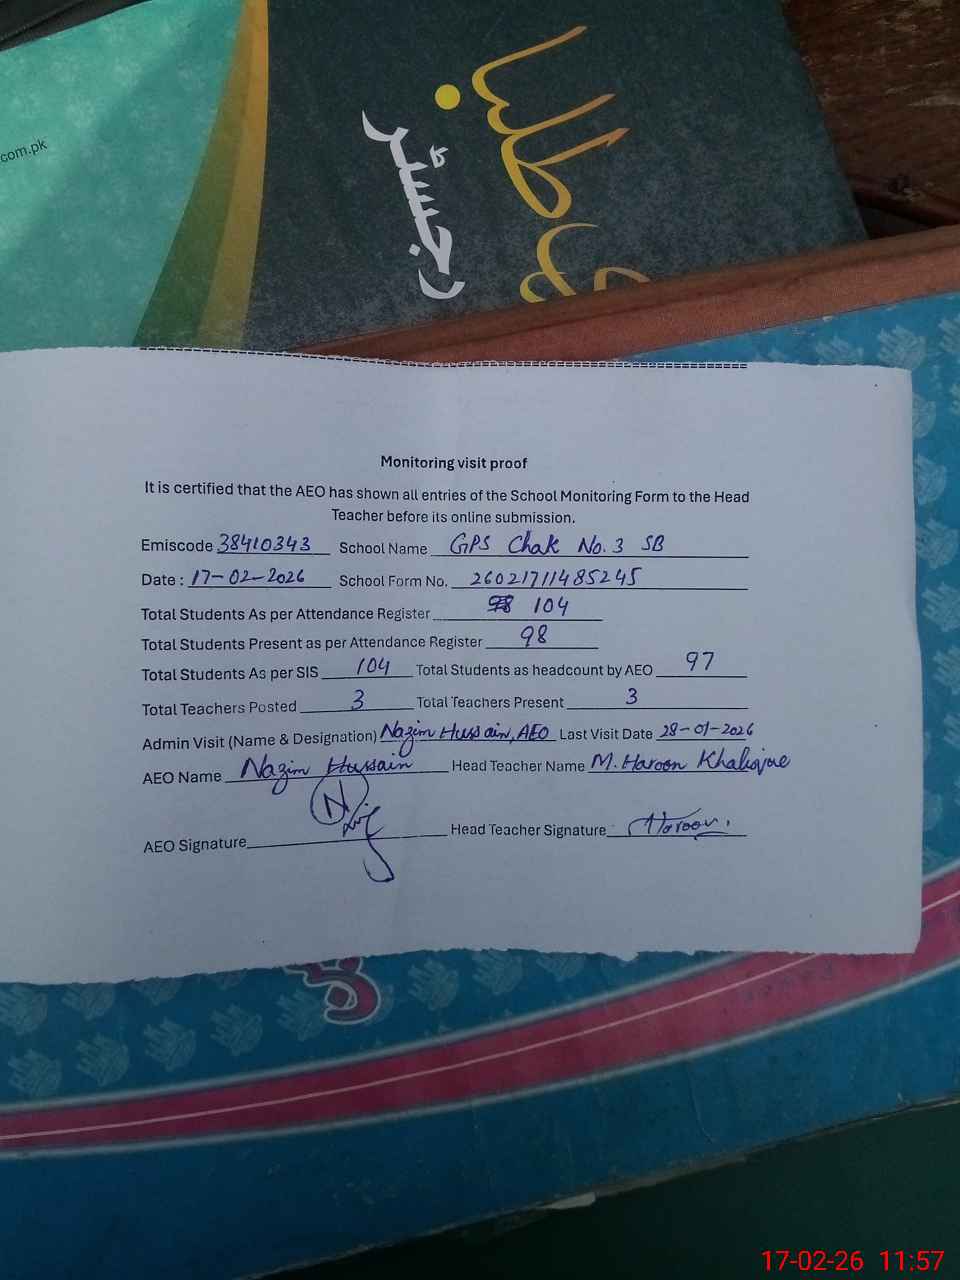 .com.pk
طلبا
رجسٹر
Monitoring visit proof
It is certified that the AEO has shown all entries of the School Monitoring Form to the Head
Teacher before its online submission.
Emiscode 38410343 School Name GPS Chak No. 3 SB
Date : 17-02-2026 School Form No. 26021711485245
Total Students As per Attendance Register 98 104
Total Students Present as per Attendance Register 98
Total Students As per SIS 104 Total Students as headcount by AEO 97
Total Teachers Posted 3 Total Teachers Present 3
Admin Visit (Name & Designation) Nazim Hussain, AEO Last Visit Date 28-01-2026
AEO Name Nazim Hussain Head Teacher Name M. Haroon Khalique
AEO Signature Head Teacher Signature Haroon.
17-02-26 11:57